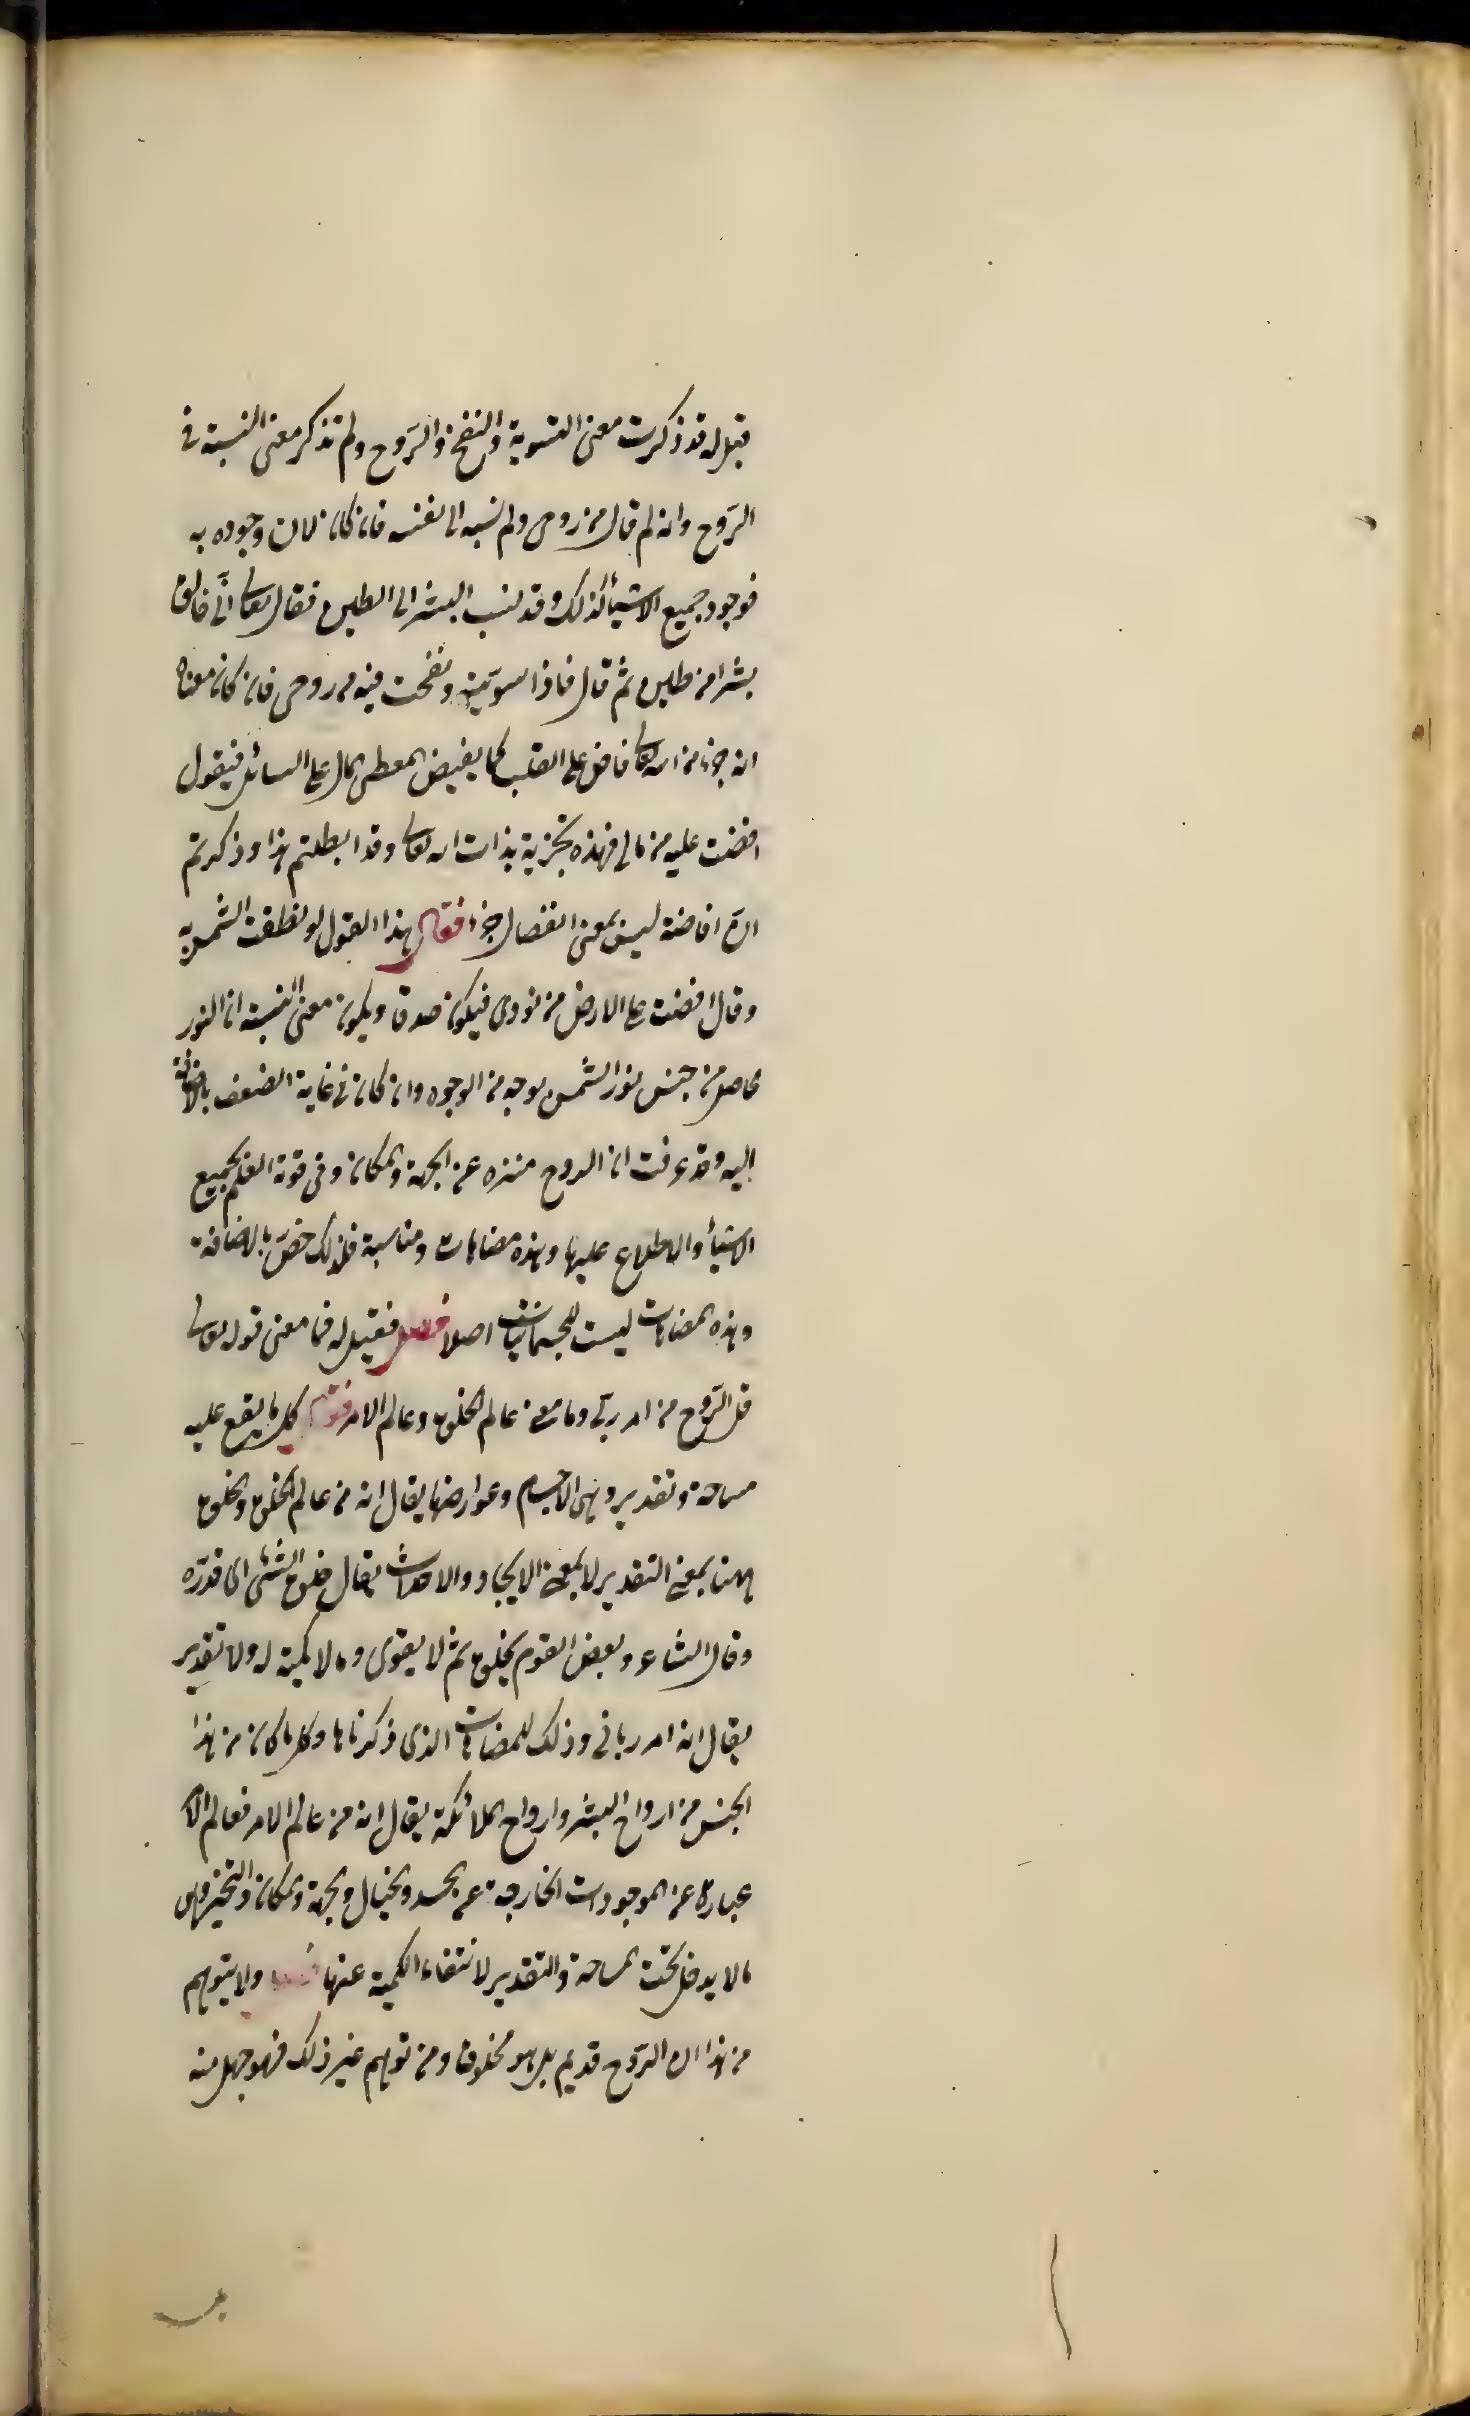 قيل له قد ذكرت معنى التسوية والنفخ والرّوح ولم تذكر معنى النسبة فى
الرّوح وانه لم قال من روحى ولم نسبه الى نفسه فان كان لان وجوده به
فوجود جميع الاشيأ كذلك وقد نسب البشر الى الطين فقال تعالى انّى خالق
بشرا من طين ثم قال فاذا سوّيته ونفخت فيه من روحى فان كان معناه
انه جزء من الله تعالى فاض على القلب كما يفيض المعطى المال على السائل فيقول
افضت عليه من مالى فهذه تجزية بذات الله تعالى وقد ابطلتم هذا وذكرتم
انّ افاضته ليس بمعنى انفصال جزء فقال هذا القول لو نطقت الشمس به
وقال افضت على الارض من نورى فيكون صدقا ويكون معنى النسبة ان النور
حاصل من جنس نور الشمس بوجه من الوجوه وان كان فى غاية الضعف بالاضافة
اليه وقد عرفت ان الروح منزه عن الجهة والمكان وفى قوته العلم بجميع
الاشيأ والاطلاع عليها وهذه مضاهات ومناسبة فلذلك خصّ بالاضافة
وهذه المضاهات ليست للجسمانيات اصلا فصل فقيل له فما معنى قوله تعالى
قل الرّوح من امر ربّى وما معنى عالم الخلق وعالم الامر فنقول كل ما يقع عليه
مساحة وتقدير وهى الاجسام وعوارضها يقال انه من عالم الخلق والخلق
ههنا بمعنى التقدير لا بمعنى الايجاد والاحداث يقال خلق الشئ اى قدّره
وقال الشاعر وبعض القوم يخلق ثم لا يقوى وما لا كمية له ولا تقدير
يقال انه امر ربانى وذلك للمضاهات الذى ذكرناها وكل ما كان من هذا
الجنس من ارواح البشر وارواح الملائكة يقال انه من عالم الامر فعالم الامر
عبارة عن الموجودات الخارجة عن الحس والخيال والجهة والمكان والتحيز وهى
ما لا يدخل تحت المساحة والتقدير لانتفاء الكمية عنها ولا يتوهم
من هذا ان الرّوح قديم بل هو مخلوق ومن توهم غير ذلك فهو جهل منه